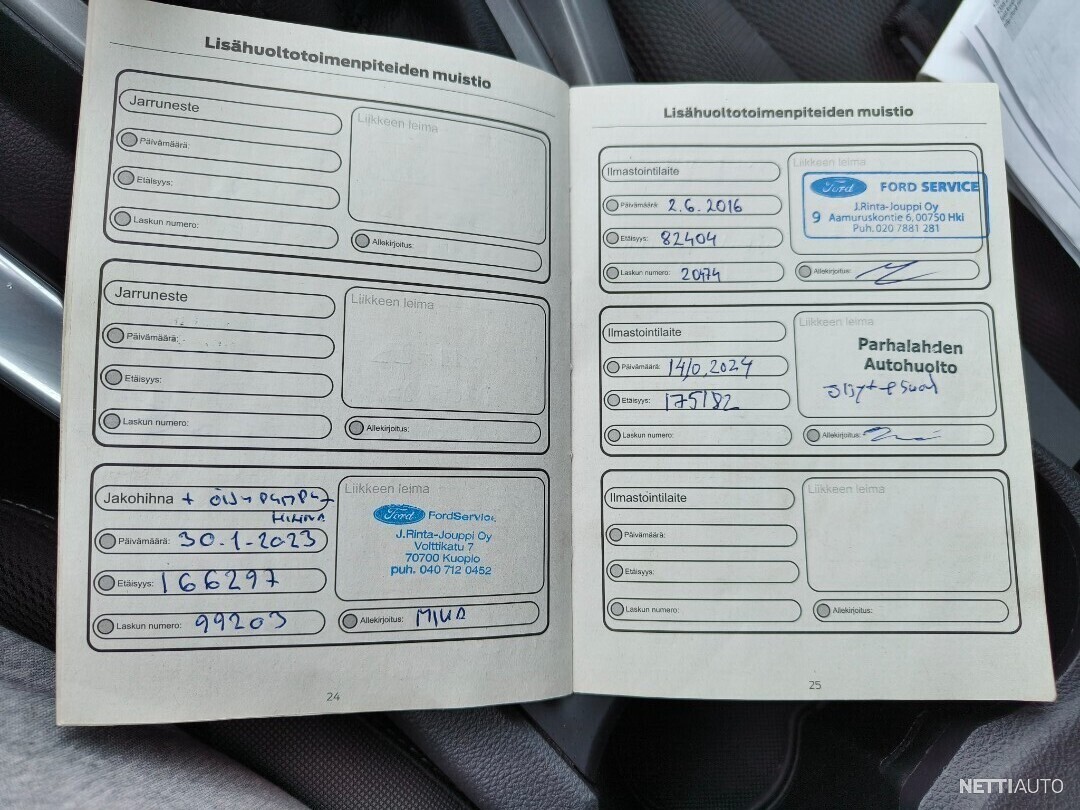 Lisähuoltotoimenpiteiden muistio
Jarruneste
Liikkeen leima
Päivämäärä:
Etäisyys:
Laskun numero:
Allekirjoitus:
Jarruneste
Liikkeen leima
Päivämäärä:
Etäisyys:
Laskun numero:
Allekirjoitus:
Jakohihna + ÖLJYPUMPUN
HIHNA
Liikkeen leima
Ford FordService
J.Rinta-Jouppi Oy
Volttikatu 7
70700 Kuopio
puh. 040 712 0452
Päivämäärä: 30.1-2023
Etäisyys: 166297
Laskun numero: 99203
Allekirjoitus: MIKA
24
Lisähuoltotoimenpiteiden muistio
Ilmastointilaite
Liikkeen leima
Ford FORD SERVICE
J.Rinta-Jouppi Oy
9 Aamuruskontie 6, 00750 Hki
Puh. 020 7881 281
Päivämäärä: 2.6.2016
Etäisyys: 82404
Laskun numero: 20474
Allekirjoitus:
Ilmastointilaite
Liikkeen leima
Parhalahden
Autohuolto
Päivämäärä:
Etäisyys: 175182
Laskun numero:
Allekirjoitus:
Ilmastointilaite
Liikkeen leima
Päivämäärä:
Etäisyys:
Laskun numero:
Allekirjoitus:
25
NETTIAUTO